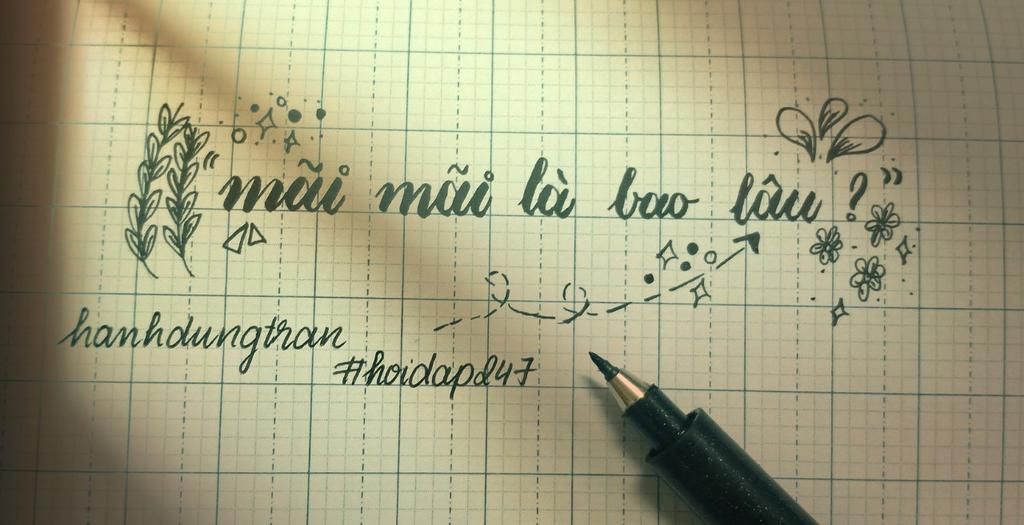 "mãi mãi là bao lâu ?"
hanhdungtran
#hoidap247